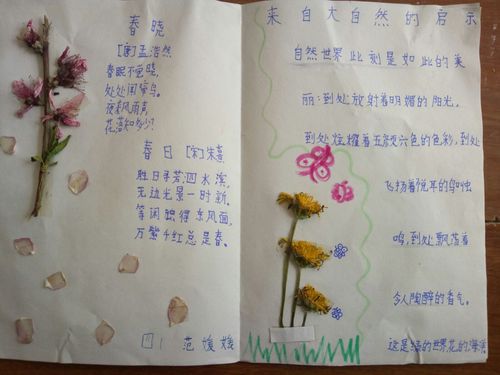 春晓
[唐]孟浩然
春眠不觉晓，
处处闻啼鸟。
夜来风雨声，
花落知多少？
春日 [宋]朱熹
胜日寻芳泗水滨，
无边光景一时新，
等闲识得东风面，
万紫千红总是春。
四1 范媛媛
来自大自然的启示
自然世界此刻是如此的美
丽：到处放射着明媚的阳光，
到处炫耀着五颜六色的色彩，到处
飞扬着悦耳的鸟和虫
鸣，到处飘荡着
令人陶醉的香气。
这是绿的世界花的海洋